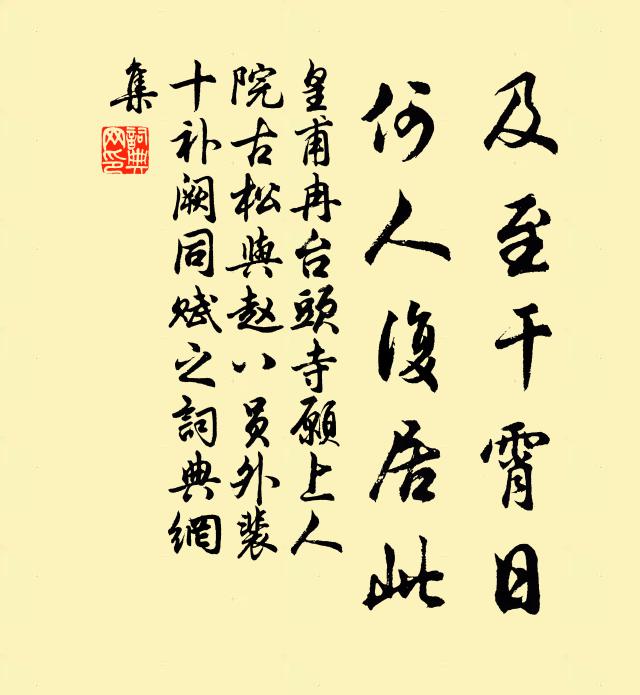 及至干霄日
何人復居此
皇甫冉台頭寺願上人
院古松與赵八员外裴
十补阙同赋之詞典網
集
詞典
网印